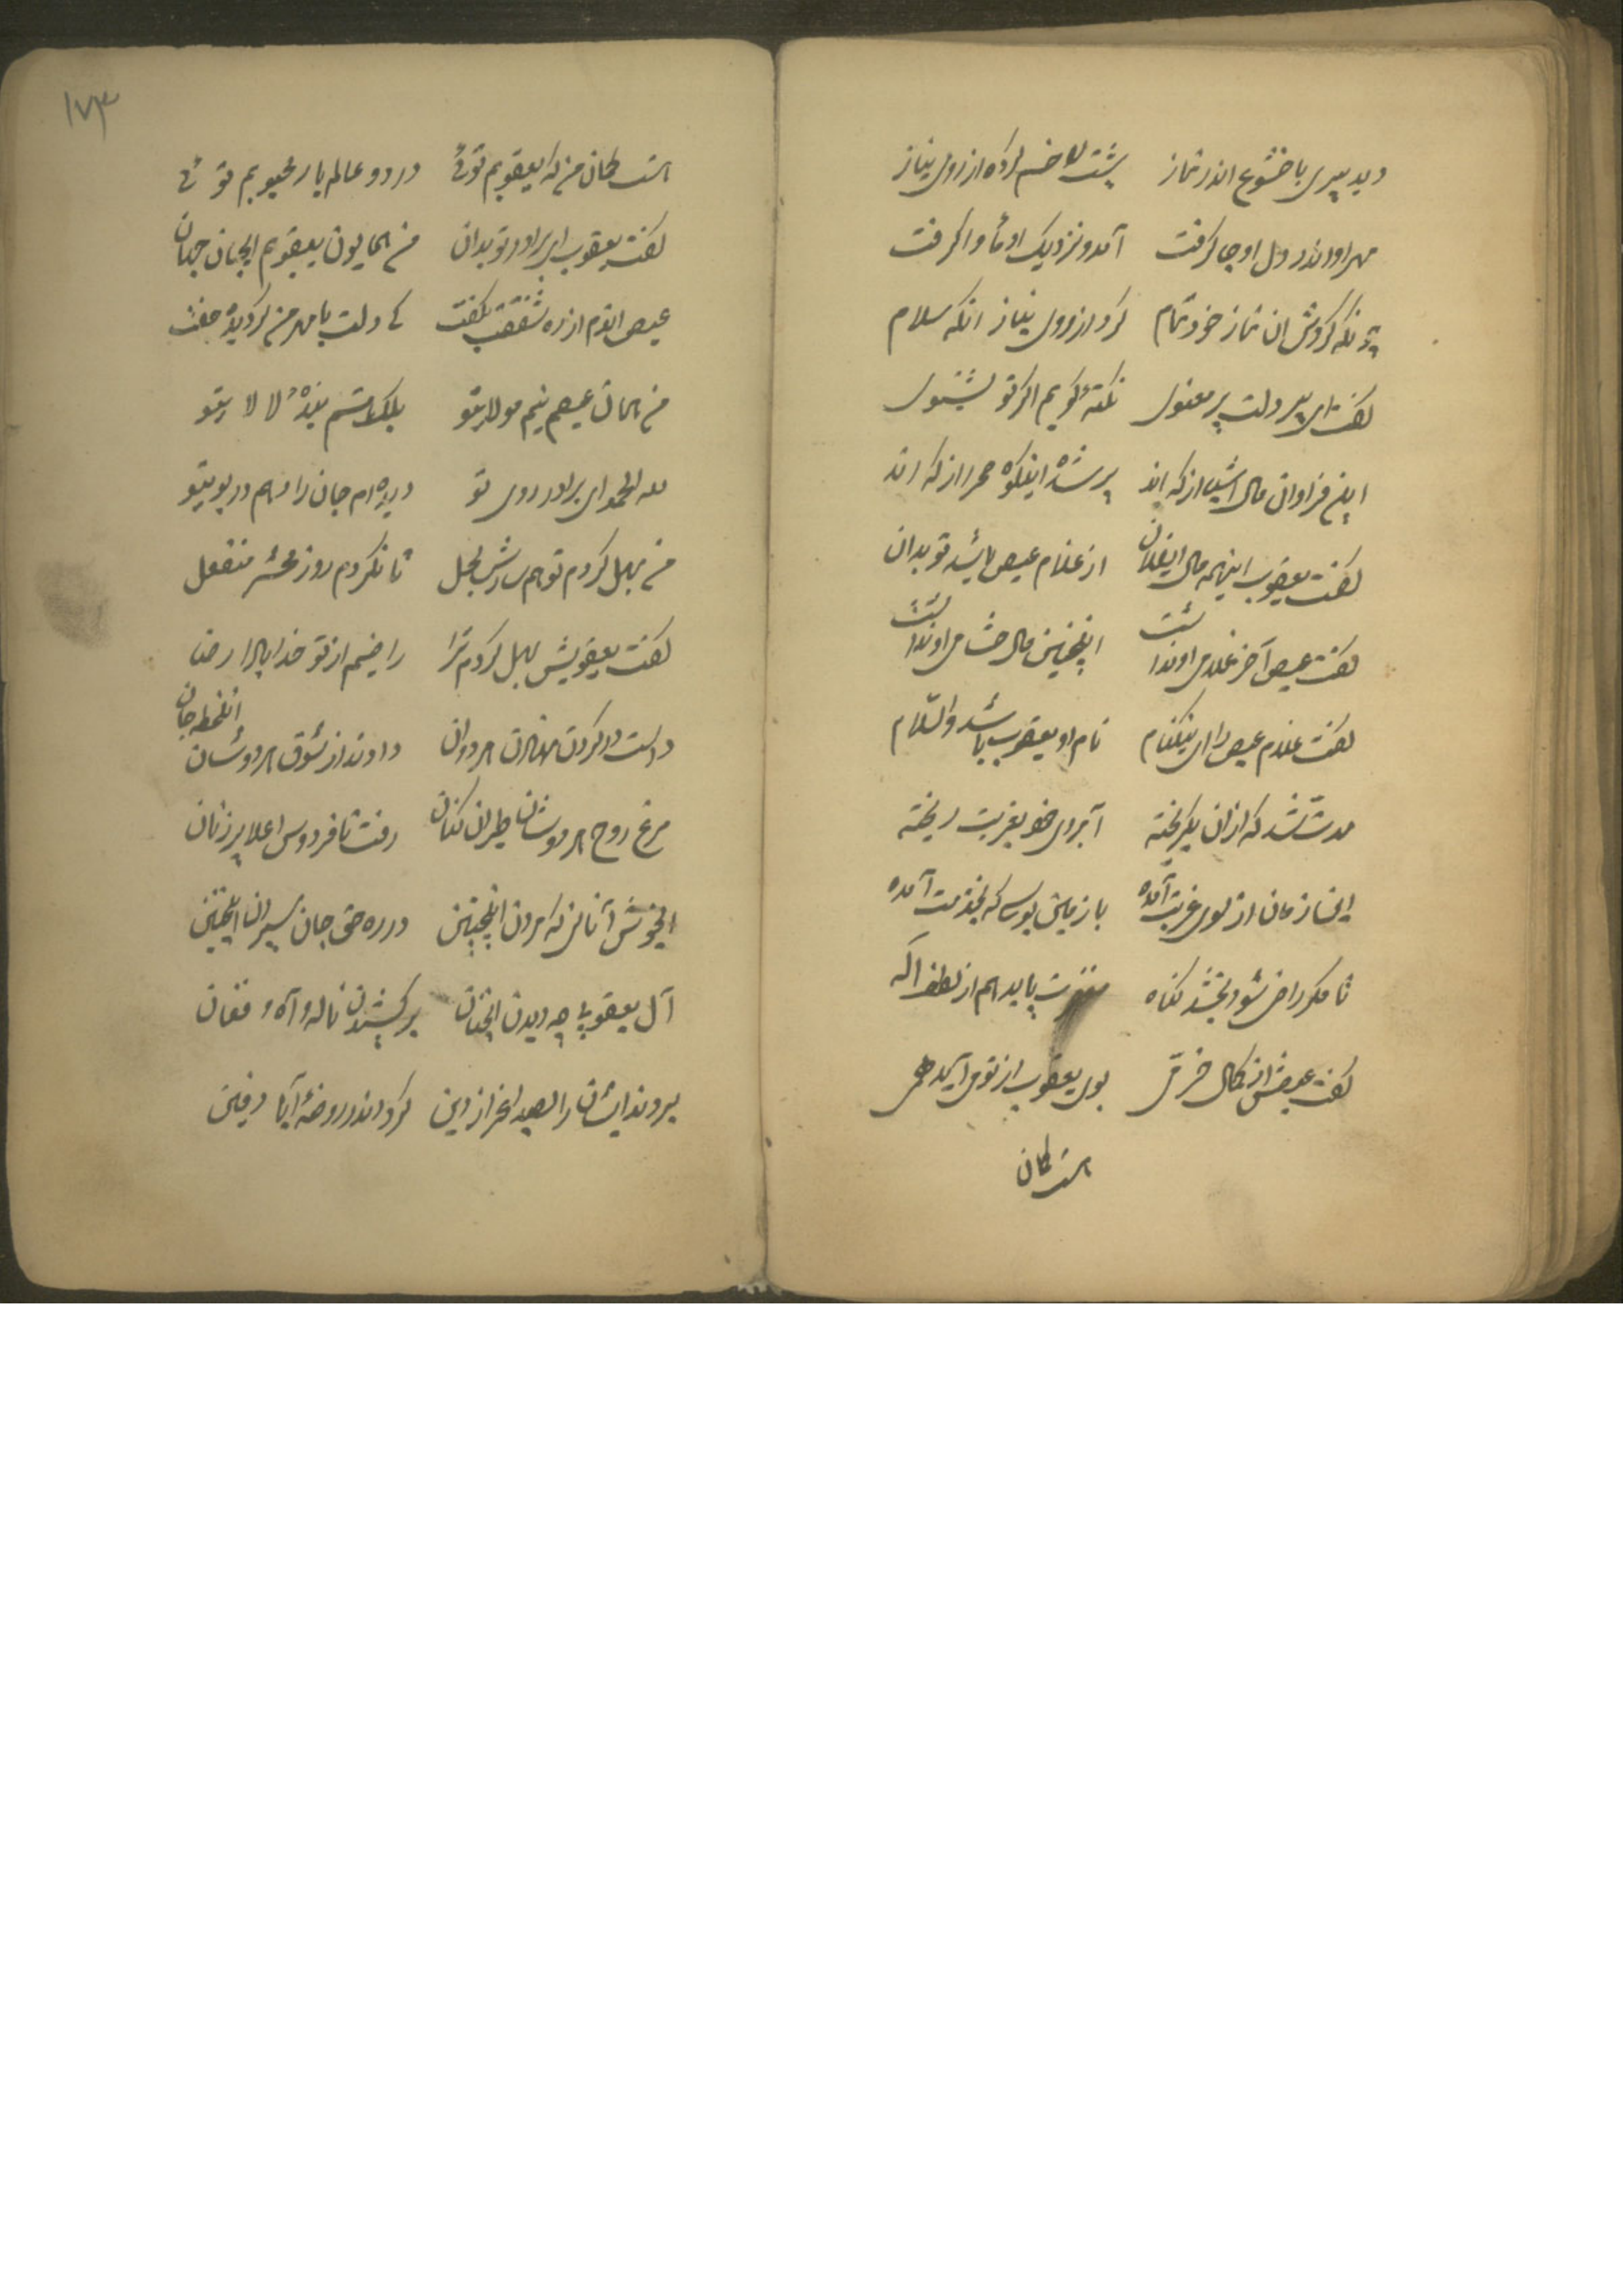 دید پیری با خشوع اندر نماز پشت را خم کرده از روی نیاز
مهر او اندر دل او جا گرفت آمد و نزدیک او مأوا گرفت
چونکه کردش ان نماز خود تمام کرد از روی نیاز انکه سلام
گفت ای پیر دلت پر معنوی نکتهٔ گویم اگر تو بشنوی
این فراوان مال اشیا از که اند پر شده اینکوه صحرا از که اند
گفت یعقوب اینهمه مال ایفلان از غلام عیص باشد تو بدان
گفت عیص آخر غلامی او نداشت اینچنین مال حشامی او نداشت
گفت غلام عیص را ای نیکنام نام او یعقوب باشد والسلام
مدتی شد که ازان بگریخته آبروی خود بغربت ریخته
این زمان از سوی غربت آمده با زمین بوسی که بخدمت آمده
تا مگر راضی شود بخشد گناه مغفرت یابد هم از لطف اله
گفت عیصش از کمال خرمی بوی یعقوب از تو می آید همی
است کمان
۱۷۳
است کمان من که یعقوبم توئی در دو عالم یار محبوبم توئی
گفت یعقوب ای برادر تو بدان من همایون یعقوبم ایجان جهان
عیص اندم از ره شفقت بگفت کای دلت با مهر من گردیده جفت
من همان عیصم نیم مولای تو بلکه هستم بندهٔ لالای تو
لله الحمد ای برادر روی تو دیده ام جان را دهم در بوی تو
من بهل کردم تو هم سازش بحل تا نگردم روز محشر منفعل
گفت یعقوبش بهل کردم ترا راضیم از تو خدا بادا رضا
دست در گردن هر دوان دادند از شوق هر دوشان انلحظه جان
مرغ روح هر دوشان طیران کنان رفت تا فردوس اعلا پرزنان
ایخوش آنانی که مردن اینچنین در ره حق جان سپردن اینچنین
آل یعقوب چه دیدن انچنان برکشیدن ناله و آه و فغان
بردند ایشان را بصد اعزاز دین کرد اندر روضهٔ آبا دفین